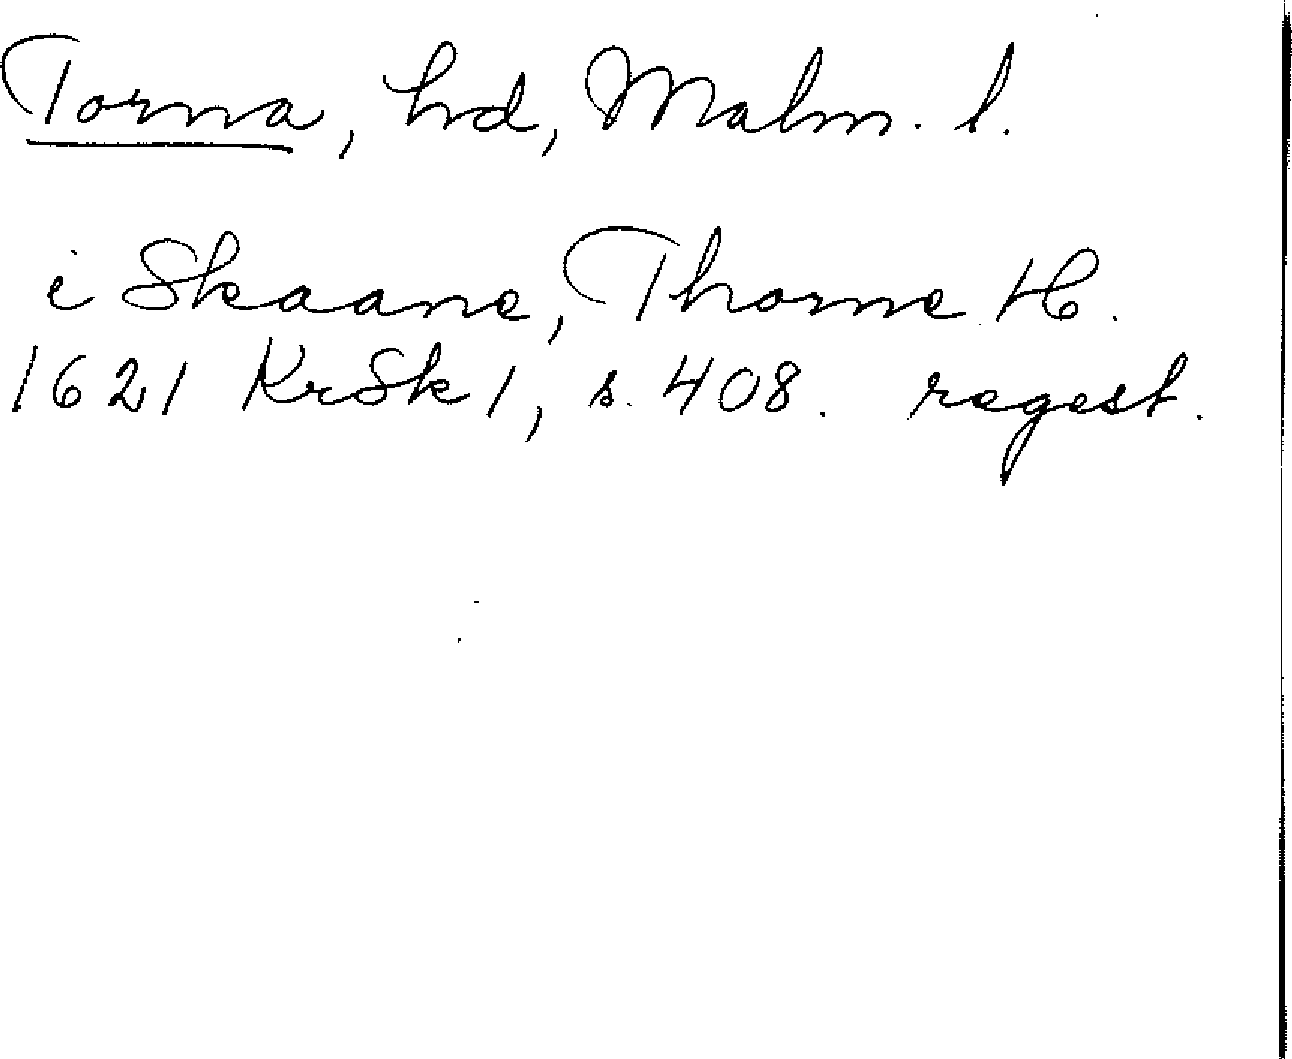 Torna, hd, Malm. l.
i Skaane, Thorne H.
1621 KrSk 1, s. 408. regest.